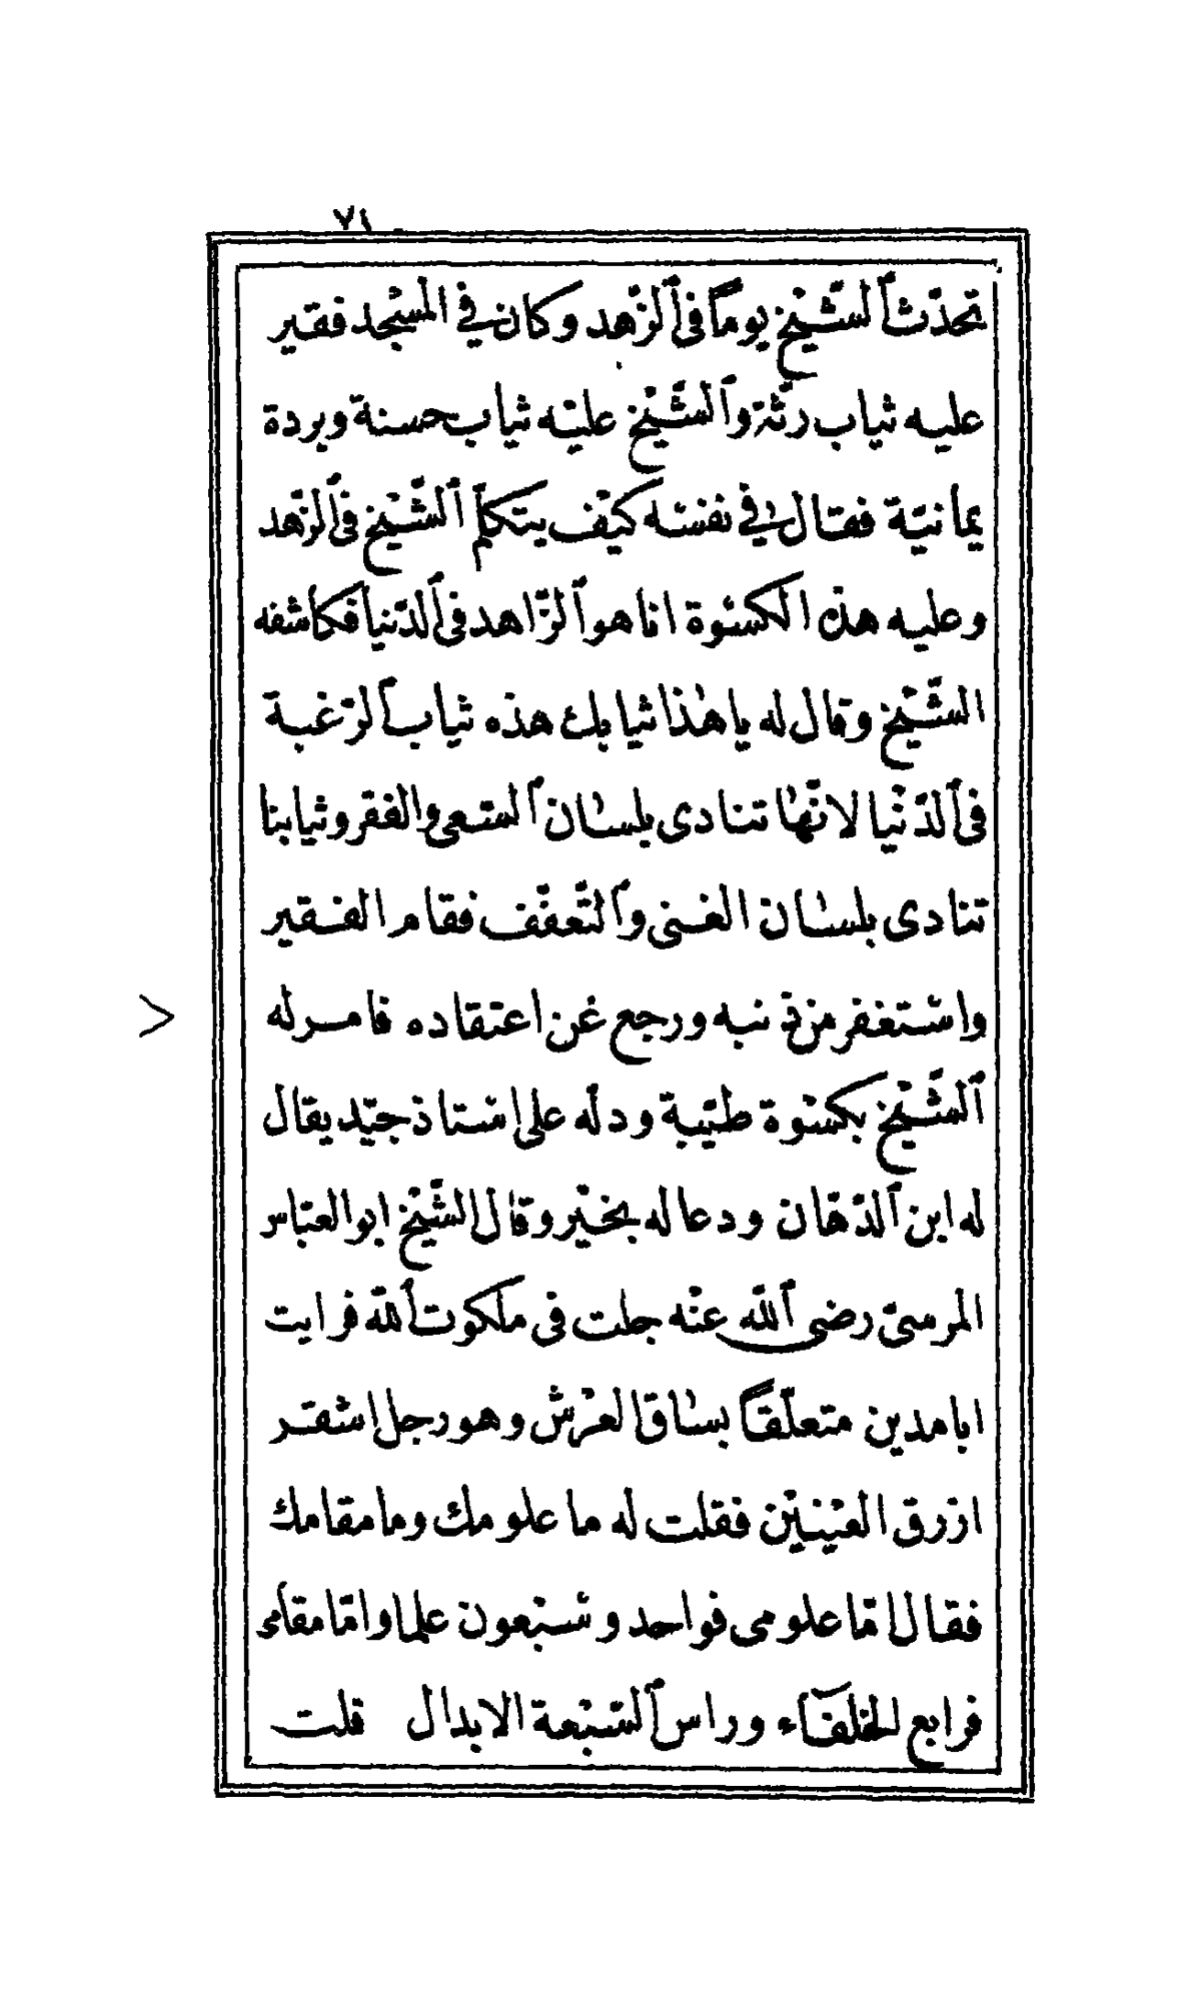 ٧١
تحدّث ٱلشّيْخ يوماً فى ٱلزّهد وكان في المسْجد فقير
عليه ثياب رثّة وٱلشّيْخ عليْه ثياب حسنة وبردة
يمانيّة فقال في نفسه كيْف يتكلّم ٱلشّيْخ فى ٱلزّهد
وعليه هذه الكسْوة انا هو ٱلزّاهد فى ٱلدّنيا فكاشفه
الشّيْخ وقال له يا هٰذا ثيابك هذه ثياب ٱلرّغبة
فى ٱلدّنْيا لانّهٰا تنادى بلسٰان ٱلسّعى والفقر وثيابنا
تنادى بلسٰان الغنى وٱلتّعفّف فقام الفقير
واسْتغفر من ذنبه ورجع عن اعتقاده فامر له
ٱلشّيْخ بكسْوة طيّبة ودلّه على استاذ جيّد يقال
له ابن ٱلدّهّان ودعا له بخيْر وقال الشّيْخ ابو العبّاس
المرسىّ رضى ٱللّه عنْه جلت فى ملكوت ٱللّه فرايت
ابا مدين متعلّقاً بسٰاق العرْش وهو رجل اشقر
ازرق العيْنيْن فقلت له ما علومك وما مقامك
فقال امّا علومى فواحد وسبْعون علما وامّا مقامى
فرابع الخلفآء وراس ٱلسّبْعة الابدال قلت